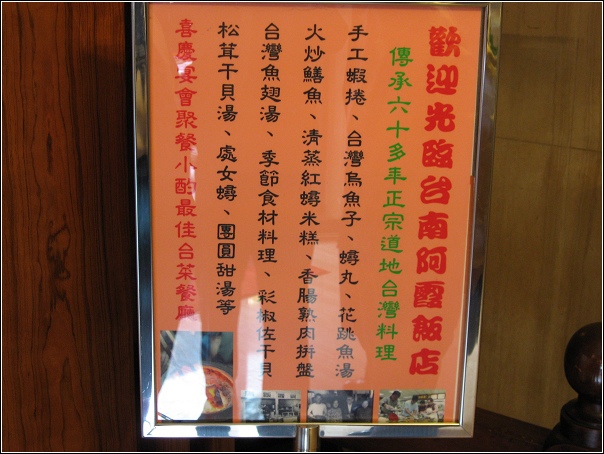 歡迎光臨台南阿霞飯店
傳承六十多年正宗道地台灣料理
手工蝦捲、台灣烏魚子、蟳丸、花跳魚湯
火炒鱔魚、清蒸紅蟳米糕、香腸熟肉拼盤
台灣魚翅湯、季節食材料理、彩椒佐干貝
松茸干貝湯、處女蟳、團圓甜湯等
喜慶宴會聚餐小酌最佳台菜餐廳